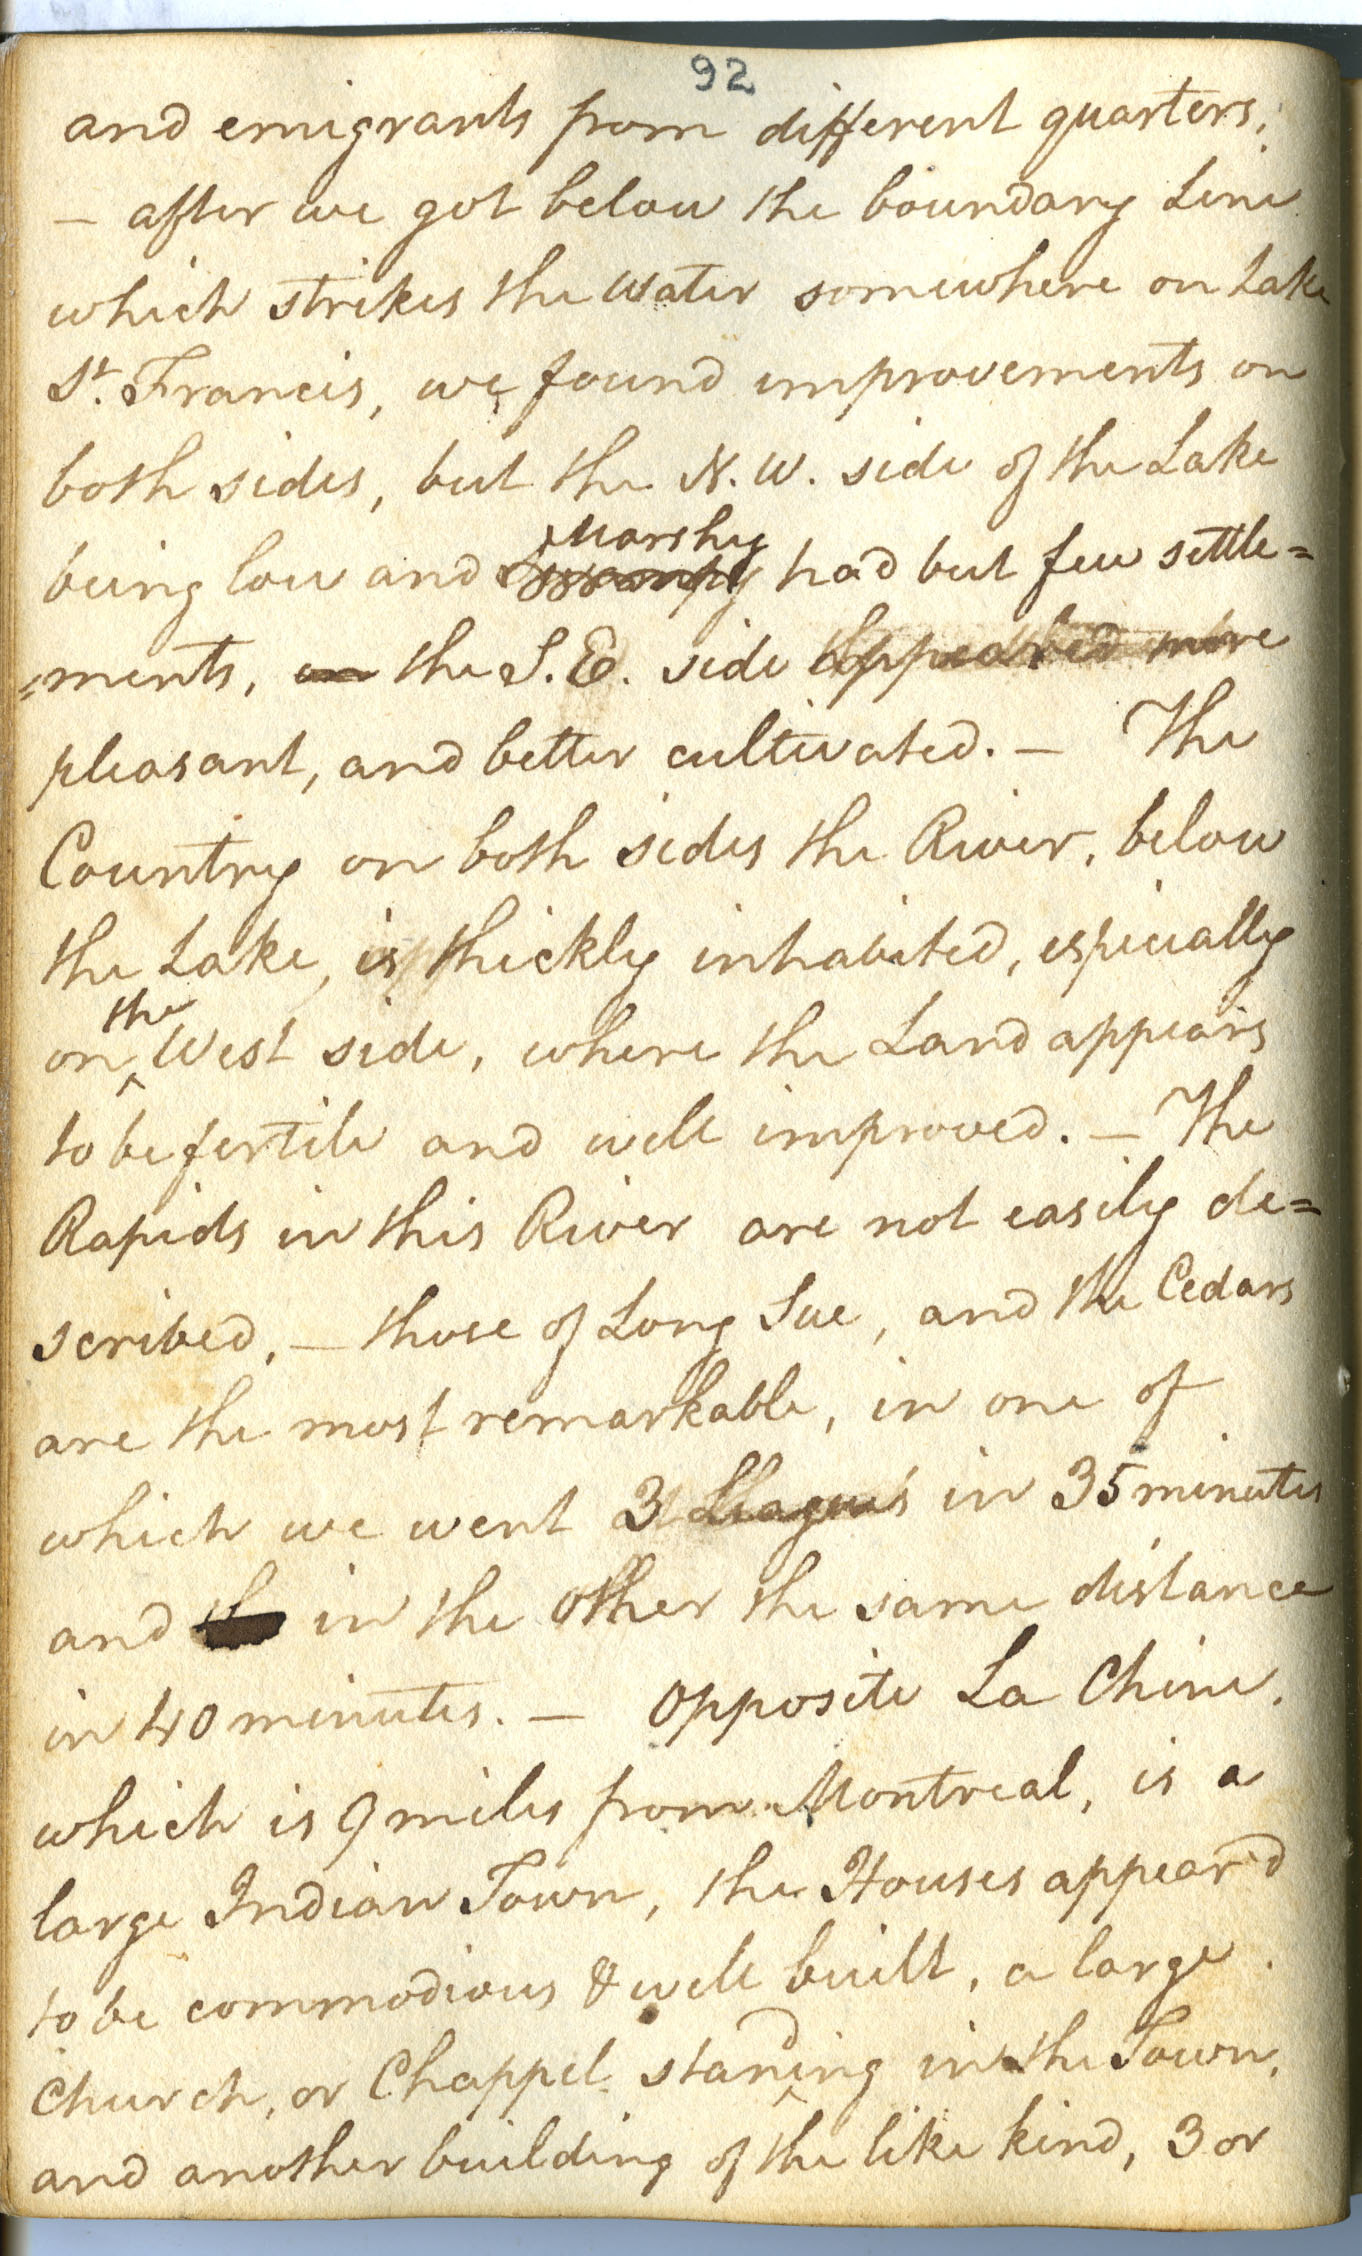 92
and emigrants from different quarters,
– after we got below the boundary Line
which strikes the Water somewhere on Lake
St. Francis, we found improvements on
both sides, but the N.W. side of the Lake
Marshy
being low and Swampy had but few settle=
=ments, on the S.E. side appeared more
pleasant, and better cultivated. – The
Country on both sides the River, below
the Lake, is thickly inhabited, especially
the
on ^ West side, where the Land appears
to be fertile and well improved. – The
Rapids in this River are not easily de=
scribed, – those of Long Sue, and the Cedars
are the most remarkable, in one of
which we went 3 Leagues in 35 minutes
and in the other the same distance
in 40 minutes. – Opposite La Chine,
which is 9 miles from Montreal, is a
large Indian Town, the Houses appear'd
to be commodious & well built, a large
Church, or Chappel standing in the Town,
and another building of the like kind, 3 or